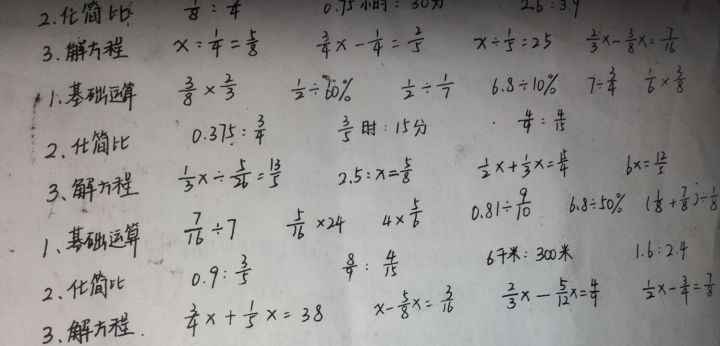 2.化简比 1/8:1/4 0.75小时:30分 2.6:3.9
3、解方程 x:1/4=5/8 3/4x-1/4=2/5 x÷1/5=25 2/3x-3/8x=7/16
1、基础运算 3/8×2/3 1/2÷60% 1/2÷1/7 6.8÷10% 7÷3/4 1/6×3/8
2、化简比 0.375:3/4 3/5时:15分 4/9:4/15
3、解方程 1/3x÷5/26=13/5 2.5:x=5/8 1/2x+1/3x=15/4 6x=12/5
1、基础运算 7/16÷7 5/16×24 4×5/6 0.81÷9/10 6.8÷50% (1/8+7/8)÷1/8
2、化简比 0.9:3/5 8/9:4/15 6千米:300米 1.6:2.4
3、解方程. 3/4x+1/5x=38 x-5/8x=3/16 2/3x-5/12x=4/9 1/2x-3/4=7/8